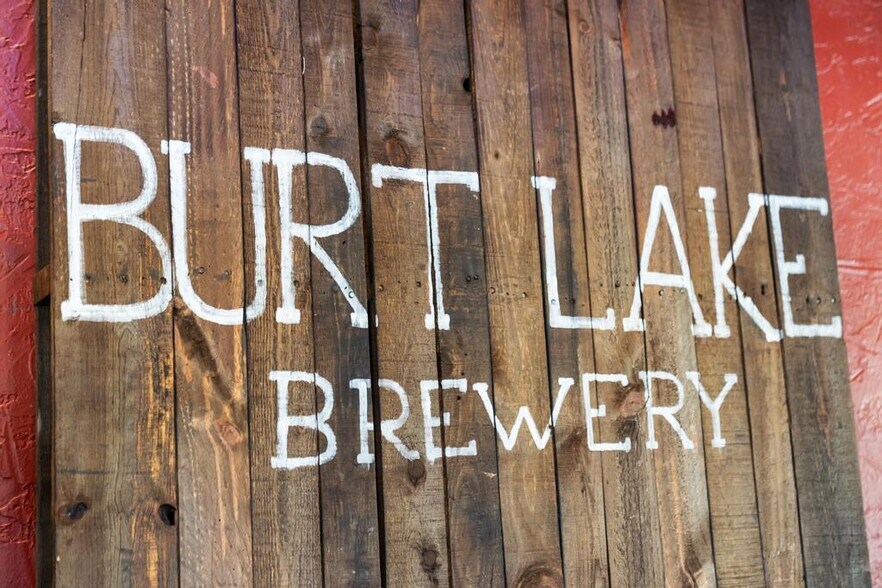 BURT LAKE
BREWERY